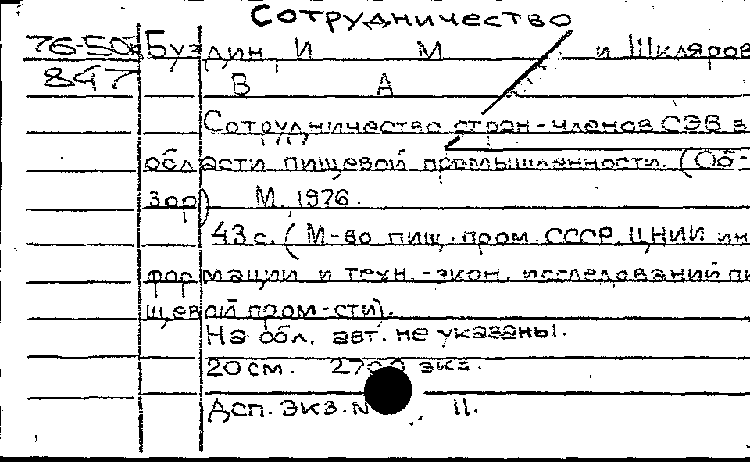 Сотрудничество
76-50 Буздин И М и Шкляров
847 В А
Сотрудничество стран-членов СЭВ в
области пищевой промышленности. (Об-
зор) М. 1976.
43 с. (М-во пищ. пром. СССР. ЦНИИ ин
формации и техн.-экон. исследований пи
щевой пром-сти).
На обл. авт. не указаны.
20 см. экз.
Дсп. экз. N 11.